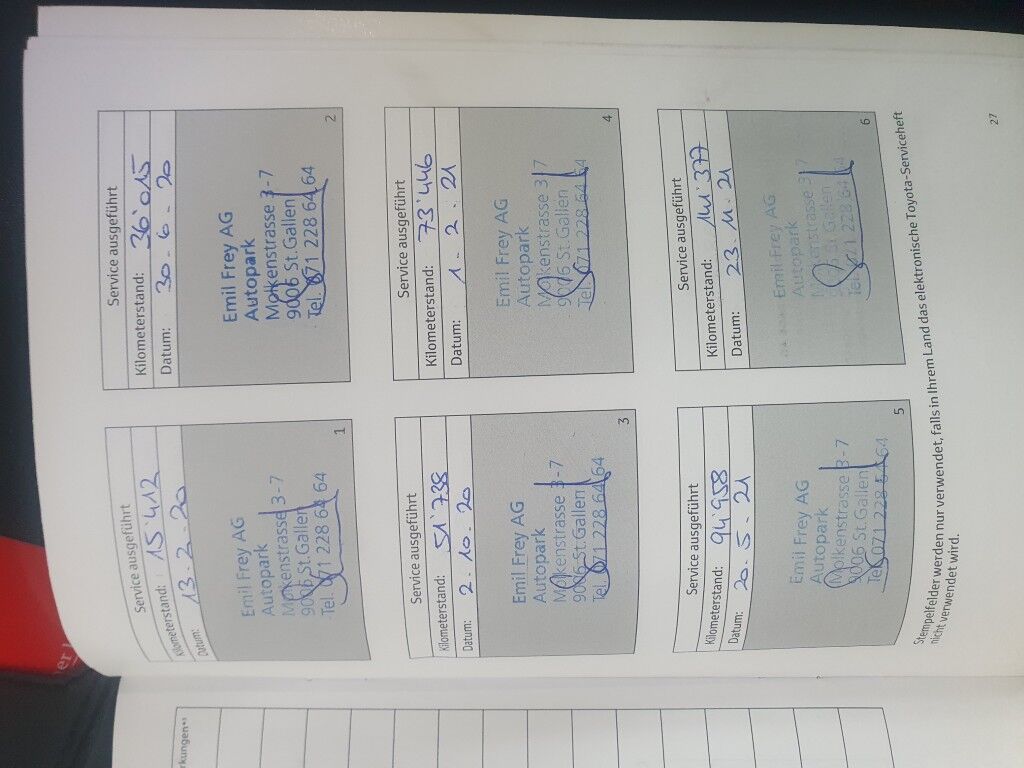 Service ausgeführt
Kilometerstand: 15'412
Datum: 13. 2. 20
Emil Frey AG
Autopark
Molkenstrasse 3-7
9006 St.Gallen
Tel. 071 228 64 64
1
Service ausgeführt
Kilometerstand: 36'015
Datum: 30. 6. 20
Emil Frey AG
Autopark
Molkenstrasse 3-7
9006 St.Gallen
Tel. 071 228 64 64
2
Service ausgeführt
Kilometerstand: 51'738
Datum: 2. 10. 20
Emil Frey AG
Autopark
Molkenstrasse 3-7
9006 St.Gallen
Tel. 071 228 64 64
3
Service ausgeführt
Kilometerstand: 73'446
Datum: 1. 2. 21
Emil Frey AG
Autopark
Molkenstrasse 3-7
9006 St.Gallen
Tel. 071 228 64 64
4
Service ausgeführt
Kilometerstand: 94'958
Datum: 20. 5. 21
Emil Frey AG
Autopark
Molkenstrasse 3-7
9006 St.Gallen
Tel. 071 228 64 64
5
Service ausgeführt
Kilometerstand: 111'377
Datum: 23. 11. 21
Emil Frey AG
Autopark
Molkenstrasse 3-7
9006 St.Gallen
Tel. 071 228 64 64
6
Stempelfelder werden nur verwendet, falls in Ihrem Land das elektronische Toyota-Serviceheft
nicht verwendet wird.
27